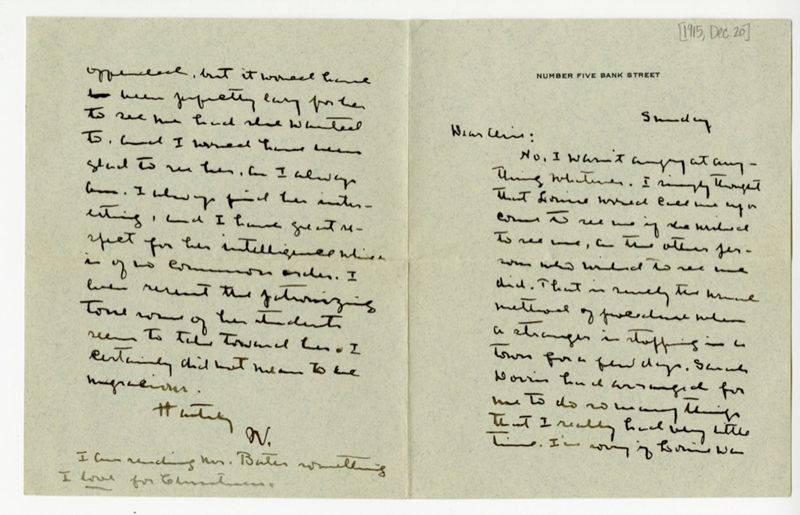 [1915, Dec. 20]
NUMBER FIVE BANK STREET
Sunday
Dear
No, I wasn't angry at any-
thing whatever. I simply thought
that Louise would call me up or
come to see me if she wished
to see me, as the other per-
sons who wished to see me
did. That is surely the usual
method of procedure when
a stranger is stopping in a
town for a few days. Sarah
Harris had arranged for
me to do so many things
that I really had very little
time. I'm sorry if Louise was
offended, but it would have
been perfectly easy for her
to see me had she wanted
to, and I would have been
glad to see her, as I always
am. I always find her inter-
esting, and I have great re-
spect for her intelligence which
is of no common order. I
even resent the patronizing
tone some of her students
seem to take toward her. I
certainly did not mean to be
ungracious.
Hastily
W.
I am sending Mrs. Bates something
I love for Christmas.